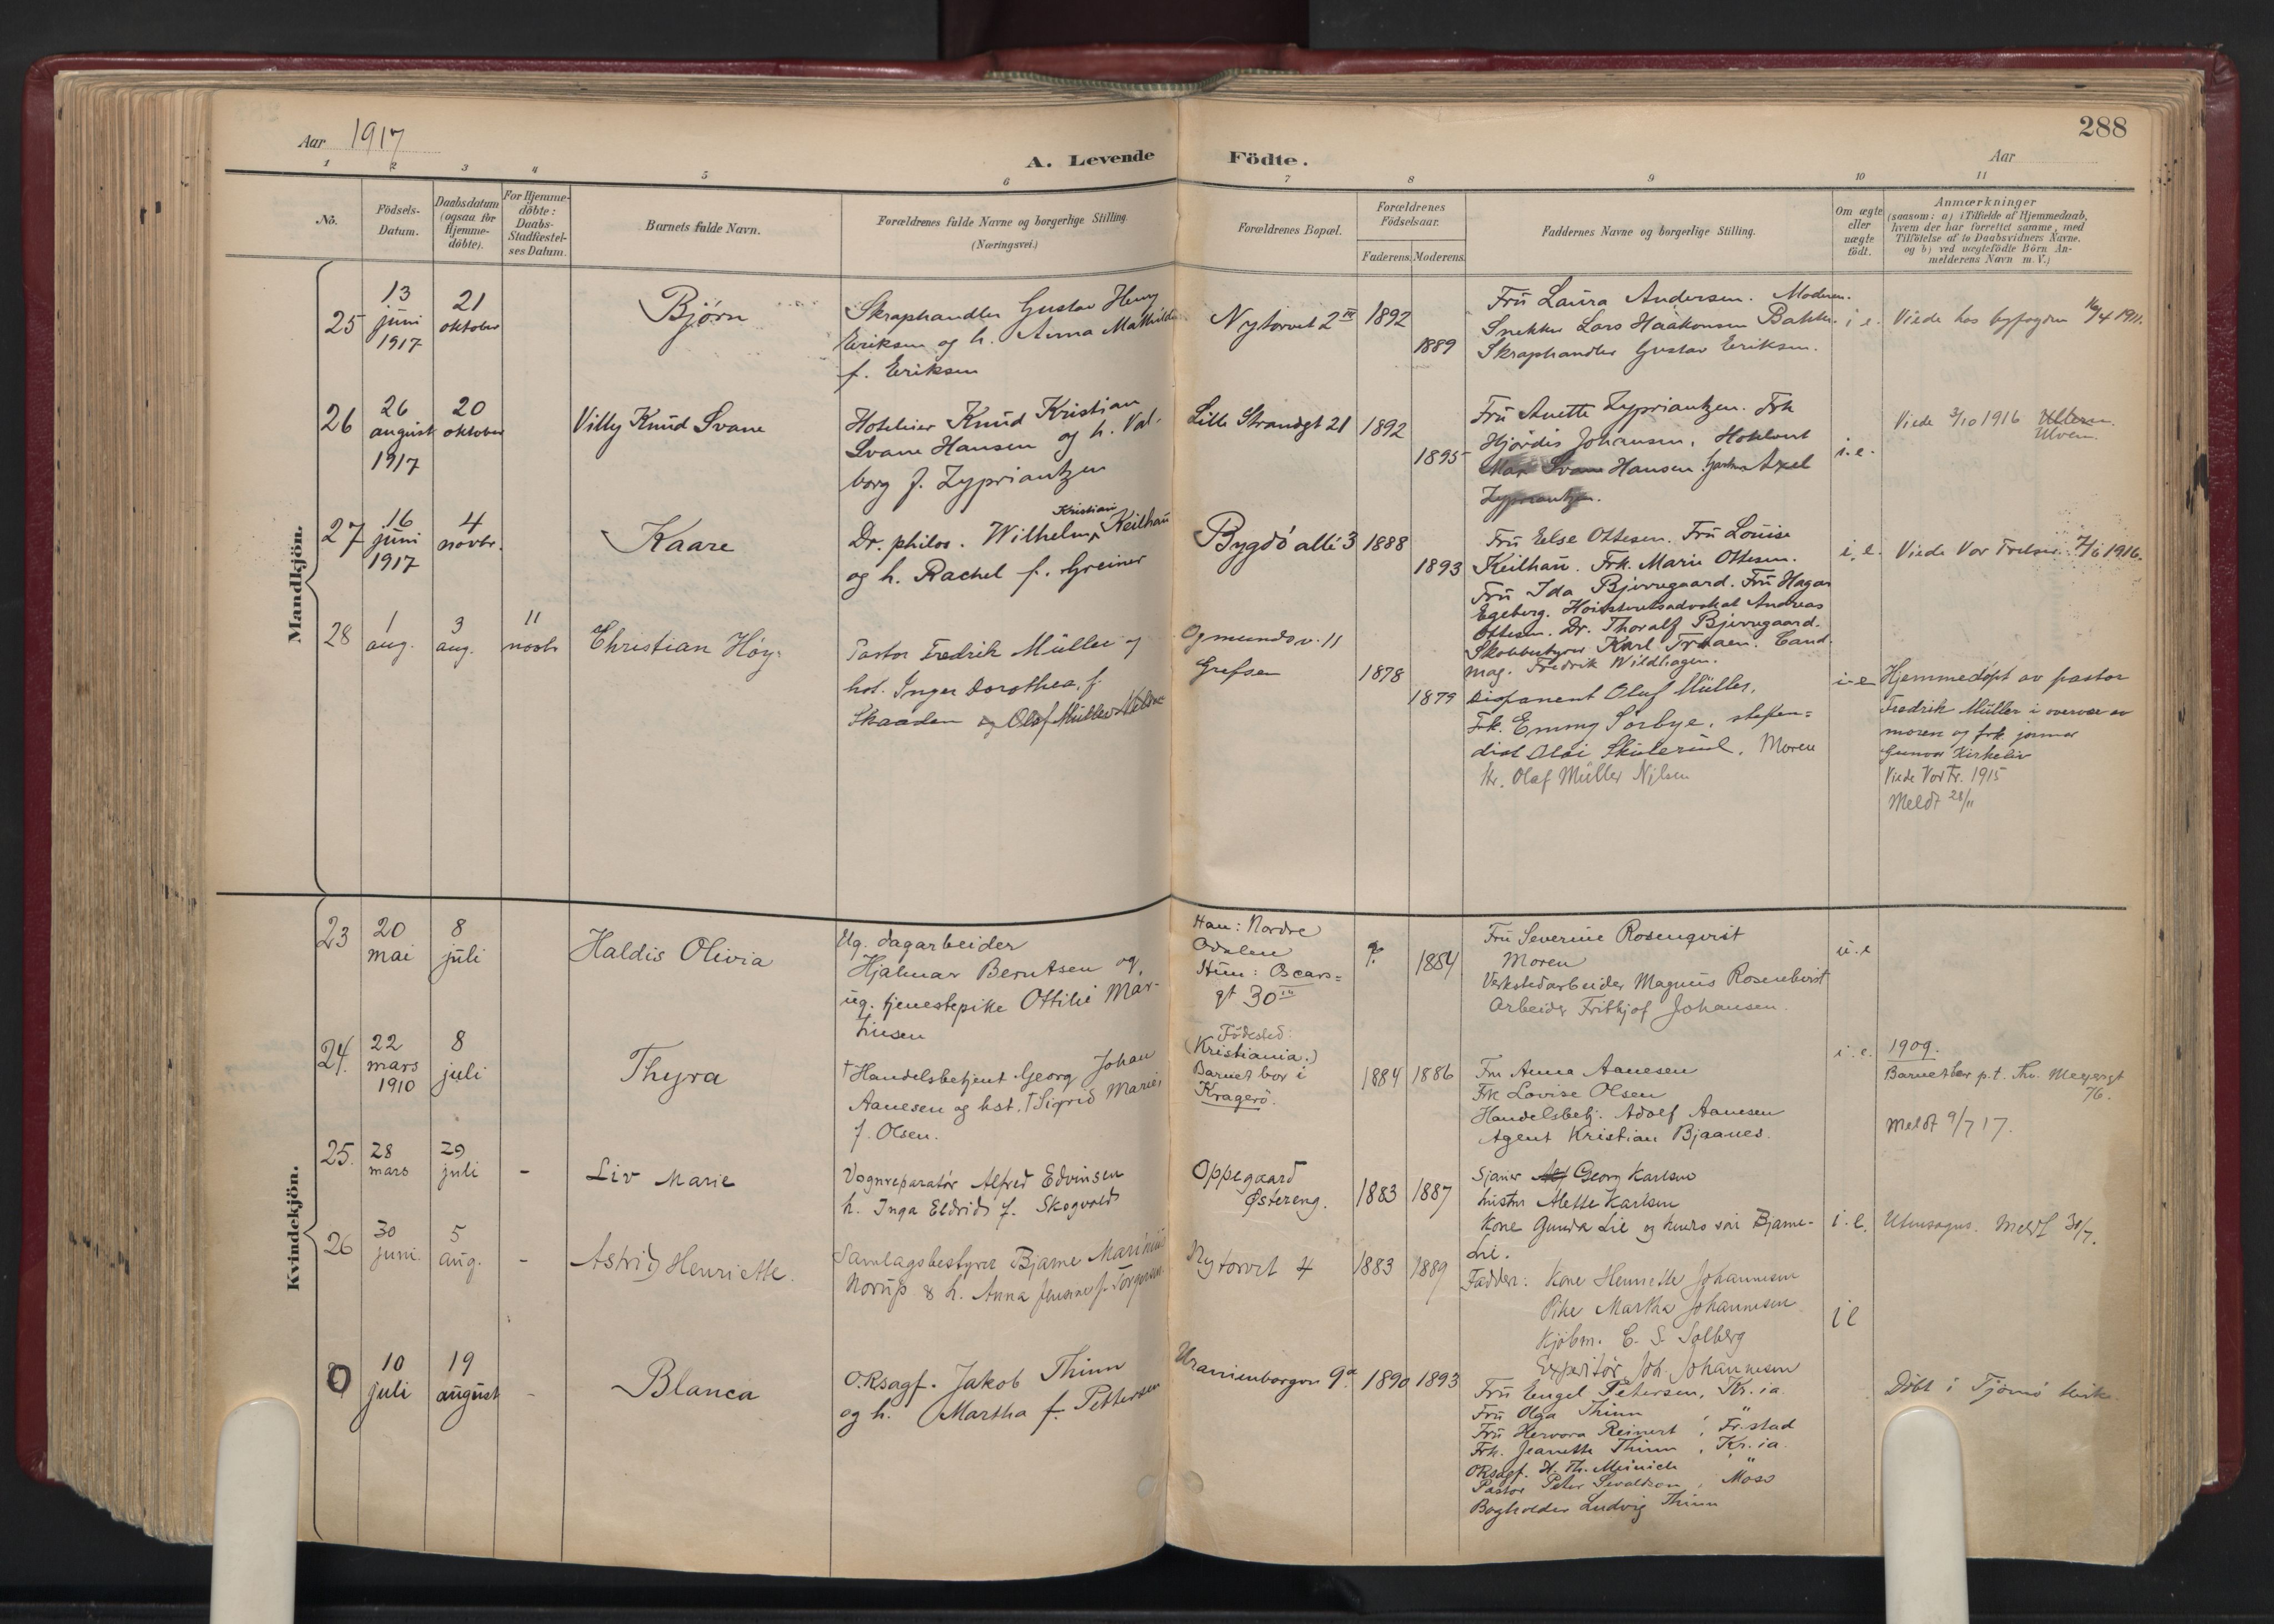 288
Aar 1917
A. Levende Födte.
Aar
1 2 3 4 5 6 7 8 9 10 11
No.
Födsels-
Datum.
Daabsdatum
(ogsaa for
Hjemme-
döbte).
For Hjemme-
döbte:
Daabs-
Stadfæstel-
ses Datum.
Barnets fulde Navn.
Forældrenes fulde Navne og borgerlige Stilling.
(Næringsvei.)
Forældrenes Bopæl.
Forældrenes
Födselsaar.
Faderens. Moderens.
Faddernes Navne og borgerlige Stilling.
Om ægte
eller
uægte
födt.
Anmærkninger
(saasom: a) i Tilfælde af Hjemmedaab,
hvem der har forrettet samme, med
Tilföielse af to Daabsvidners Navne.
og b) ved uægtefödte Börn An-
melderens Navn m. V.)
Mandkjön.
25
13
juni
1917
21
oktober
Bjørn
Skraphandler Gustav Henry
Eriksen og h. Anna Mathilde
f. Eriksen
Nytorvet 2 III
1892
1889
Fru Laura Andersen. Moderen.
Snekker Lars Haakonsen Bakke.
Skraphandler Gustav Eriksen.
i e.
Viede hos byfogden 10/4 1911.
26
26
august
1917
20
oktober
Villy Knud Svane
Hotelier Knud Kristian
Svane Hansen og h. Val-
borg f. Zypriantzen
Lille Strandgt 21
1892
1895
Fru Anette Zypriantzen. Frk
Hjördis Johansen, Hotelvert
Max Svane Hansen. Axel
Zypriantzen.
i. e.
Viede 3/10 1916
Ulvem.
27
16
juni
1917
4
novbr.
Kaare
Dr. philos. Wilhelm Kristian Keilhau
og h. Rachel f. Greiner
Bygdö allé 3
1888
1893
Fru Else Ottesen. Fru Louise
Keilhau. Frk. Marie Ottesen.
Fru Ida Bjerregaard. Fru Hagar
Egeberg. Höiesteretsadvokat Andreas
Ottesen. Dr. Thoralf Bjerregaard.
Skobestyrer Karl Traaen. Cand.
mag. Fredrik Wildhagen.
i. e.
Viede Vor Frelser 7/6 1916.
28
1
aug.
3
aug.
11
novbr
Christian Høy-
Pastor Fredrik Müller og
hst. Inger Dorothea, f.
Skaaden
Ogmundsv. 11
Grefsen
1878
1879
Disponent Oluf Müller,
Frk. Emmy Sörbye, stipen-
diat Olai Skulerud. Moren
Hr. Olaf Müller Nilsen
i-e
Hjemmedøpt av pastor
Fredrik Müller i overvær av
moren og frk. jormor
Gunvor Kirkeliv
Viede Vor Fr. 1915
Meldt 28/11
Kvindekjön.
23
20
mai
8
juli
Haldis Olivia
Ug. dagarbeider
Hjalmar Berntsen og,
ug. tjenestepike Ottilie Mar-
tinsen
Han: Nordre
Odalen
Hun: Oscars-
gt 30 III
?
1884
Fru Severine Rosenqvist
Moren
Verkstedarbeider Magnus Rosenkvist
Arbeider Frithjof Johansen.
u. e
24.
22
mars
1910
8
juli
Thyra
†Handelsbetjent Georg Johan
Aanesen og hst. †Sigrid Marie,
f. Olsen.
Födested:
(Kristiania.)
Barnet bor i
Kragerö.
1884 1886
Fru Anna Aanesen
Frk Lovise Olsen
Handelsbetj. Adolf Aanesen
Agent Kristian Bjaanes.
i. e.
1909.
Barnet bor p.t. Thv. Meyersgt
76.
Meldt 9/7 17.
25.
28
mars
29
juli
-
Liv Marie
Vognreparatör Alfred Edvinsen
h. Inga Eldrid f. Skogvold
Oppegaard
Østereng.
1883 1887
Sjauer Georg Karlsen
hustru Alette Karlsen
Kone Gunda Lie og hendes sön Bjarne
Lie.
i. e.
Utensogns. Meldt 30/7.
26
30
juni.
5
aug.
-
Astrid Henriette.
Samlagsbestyrer Bjarne Marinius
Norup & h. Anna Jensine f. Torgersen
Nytorvet 4
1883 1889
Fadder: Kone Henriette Johannesen
Pike Martha Johannesen
Kjöbm. C. S. Solberg
Expeditör Joh. Johannesen
i e
0
10
juli
19
august
-
Blanca
O.Rsagf. Jakob Thinn
og h. Martha f. Pettersen
Uranienborgvn 9a.
1890 1893
Fru Engel Petersen, Kr.ia.
Fru Olga Thinn , "
Fru Hervora Reinert , Fr.stad
Frk. Jeanette Thinn , Kr.ia.
ORsagf. H. Th. Meinich "
Pastor Peter Sevaldson , Moss
Bogholder Ludvig Thinn
Döbt i Tjömö kirke.